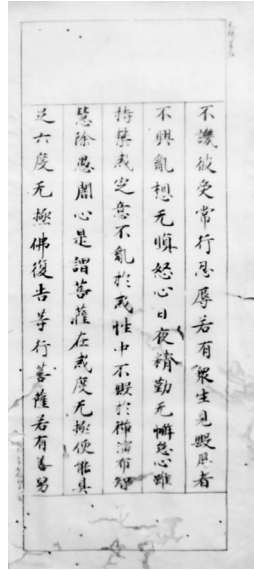 不譏彼受常行忍辱若有眾生見毀辱者
不興亂想无瞋怒心日夜精勤无懈怠心雖
持禁戒定意不亂於戒性中不毀於禪演布智
慧除愚闇心是謂菩薩在戒度无極便能具
足六度无極佛復告等行菩薩若有善男